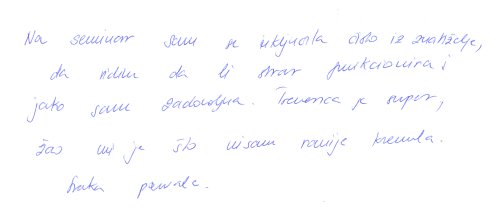 Na seminar sam se uključila čisto iz znatiželje,
da vidim da li stvar funkcionira i
jako sam zadovoljna. Trenerica je super,
žao mi je što nisam ranije krenula.
Svaka pohvala.